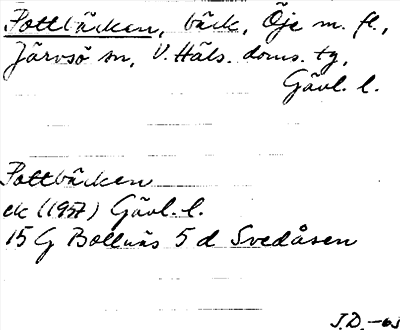 Pottbäcken, bäck, Öje m. fl.,
Järvsö sn, V. Häls. doms. tg,
Gävl. l.
Pottbäcken
ek (1957) Gävl. l.
15 G Bollnäs 5 d Svedåsen
J.D. -63